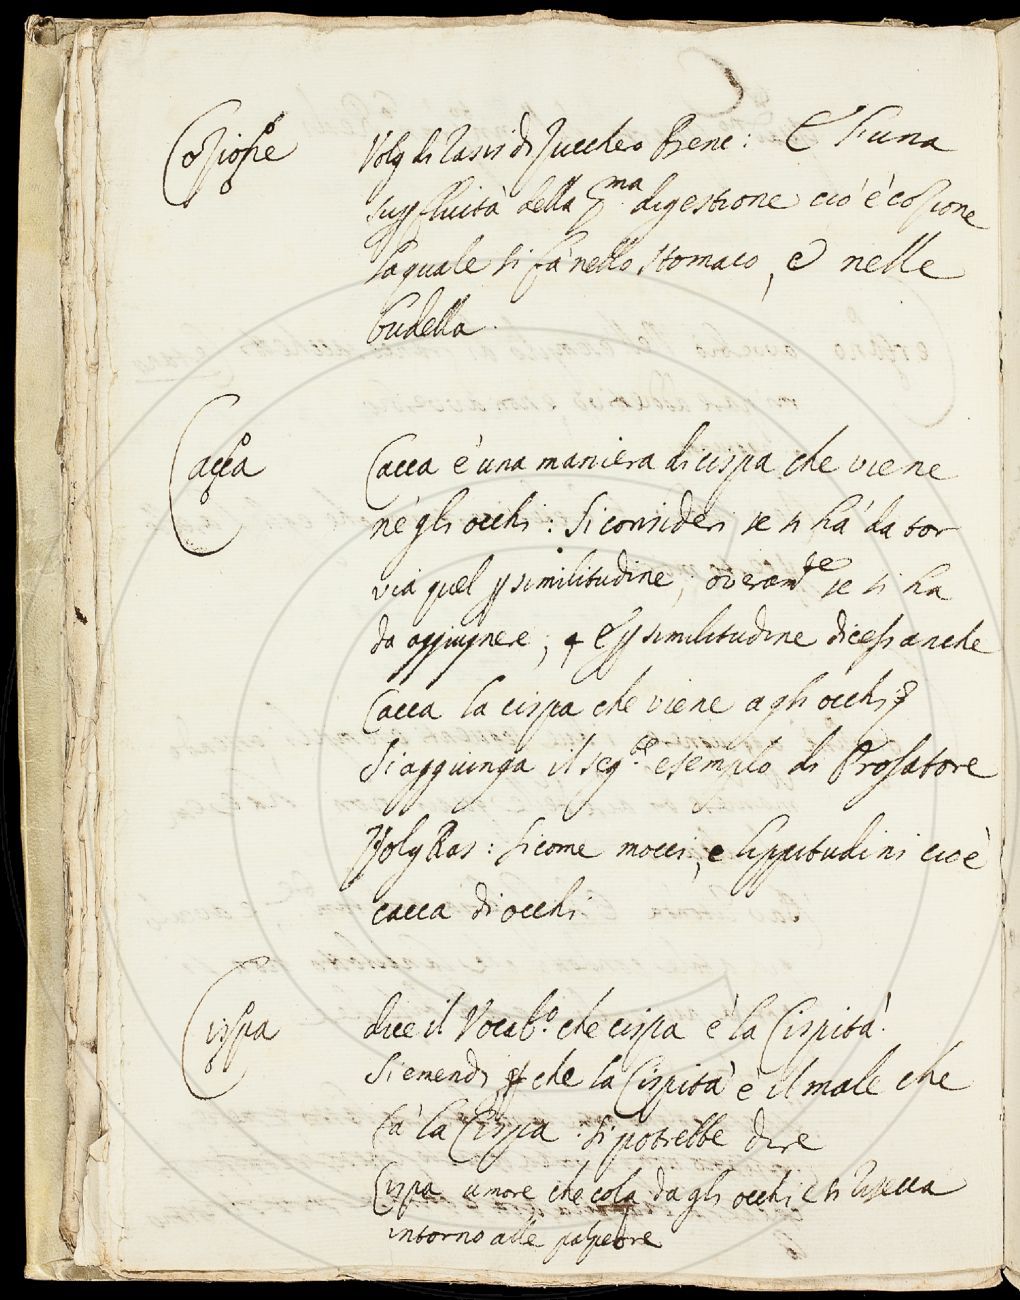 Cozione
Volg di Rasis di Zucchero Bene: E' è una
superfluità della pma digestione ciò è cozione
la quale si fà nello stomaco, e nelle
budella.
Cacca
Cacca è una maniera di cispa che viene
nè gli occhi: Si consideri se si hà da tor
via quel p similitudine, overamte se si ha
da aggiugnere, E p similitudine dicesi anche
Cacca la cispa che viene agli occhi
Si aggiunga il segte esempio di Prosatore
Volg Ras: Sicome mocci, e lippitudini cioè
cacca di occhi
Cispa
dice il Vocabo che cispa è la Cispità.
Si emendi che la Cispità è il male che
fà la Cispa. Si potrebbe dire
Cispa umore che cola dagli occhi e si risecca
intorno alle palpebre